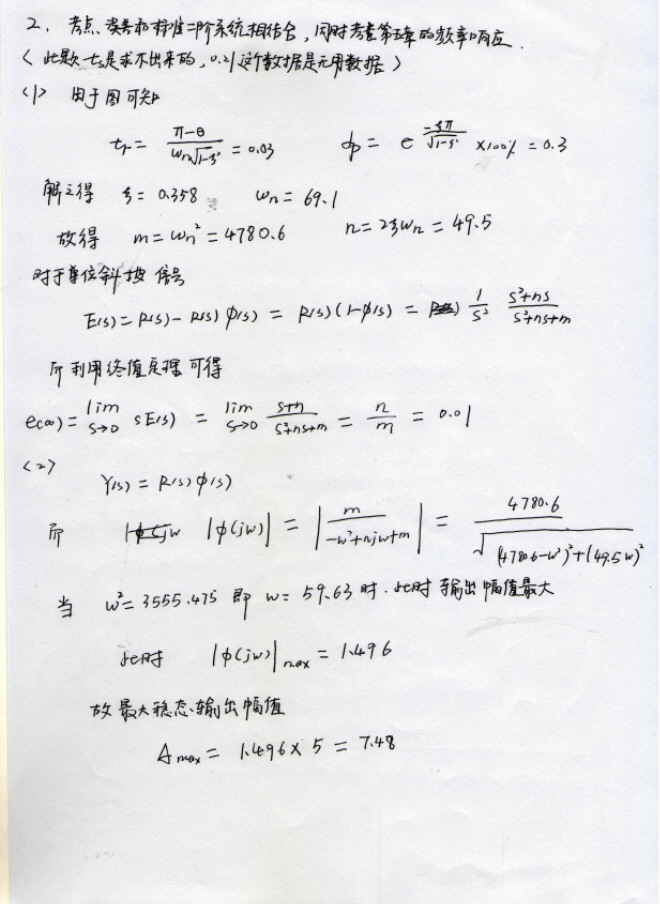 2. 考点:误差和标准二阶系统相结合,同时考查第五章的频率响应.
(此题 ts是求不出来的,0.21这个数据是无用数据)
<1> 由于图可知
tr = (π-θ)/(ωn√(1-ζ²)) = 0.03    σp = e^(-ζπ/√(1-ζ²)) ×100% = 0.3
解之得 ζ = 0.358    ωn = 69.1
故得 m = ωn² = 4780.6    n = 2ζωn = 49.5
对于单位斜坡信号
E(s) = R(s) - R(s)φ(s) = R(s)(1-φ(s)) = 1/s² (s²+ns)/(s²+ns+m)
所利用终值定理可得
e(∞) = lim s→0 sE(s) = lim s→0 (s+n)/(s²+ns+m) = n/m = 0.01
<2>
Y(s) = R(s)φ(s)
所 |φ(jw)| = |m/(-w²+njw+m)| = 4780.6/√((4780.6-w²)²+(49.5w)²)
当 w² = 3555.475 即 w = 59.63 时.此时输出幅值最大
此时 |φ(jw)|max = 1.496
故最大稳态输出幅值
Amax = 1.496 × 5 = 7.48